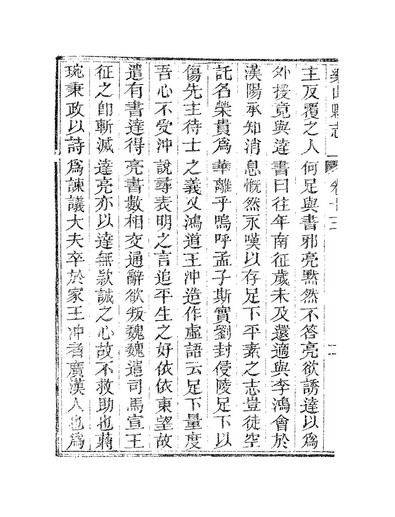 樂山縣志 卷十三
主反覆之人何足與書邪亮默然不答亮欲誘達以為
外援竟與達書曰往年南征歲未及還適與李鴻會於
漢陽承知消息慨然永嘆以存足下平素之志豈徒空
託名榮貴為華離乎嗚呼孟子斯實劉封侵陵足下以
傷先主待士之義又鴻道王沖造作虛語云足下量度
吾心不受沖說尋表明之言追平生之好依依東望故
遣有書達得亮書數相交通辭欲叛魏魏遣司馬宣王
征之卽斬滅達亮亦以達無款誠之心故不救助也蔣
琬秉政以詩為諫議大夫卒於家王沖者廣漢人也為